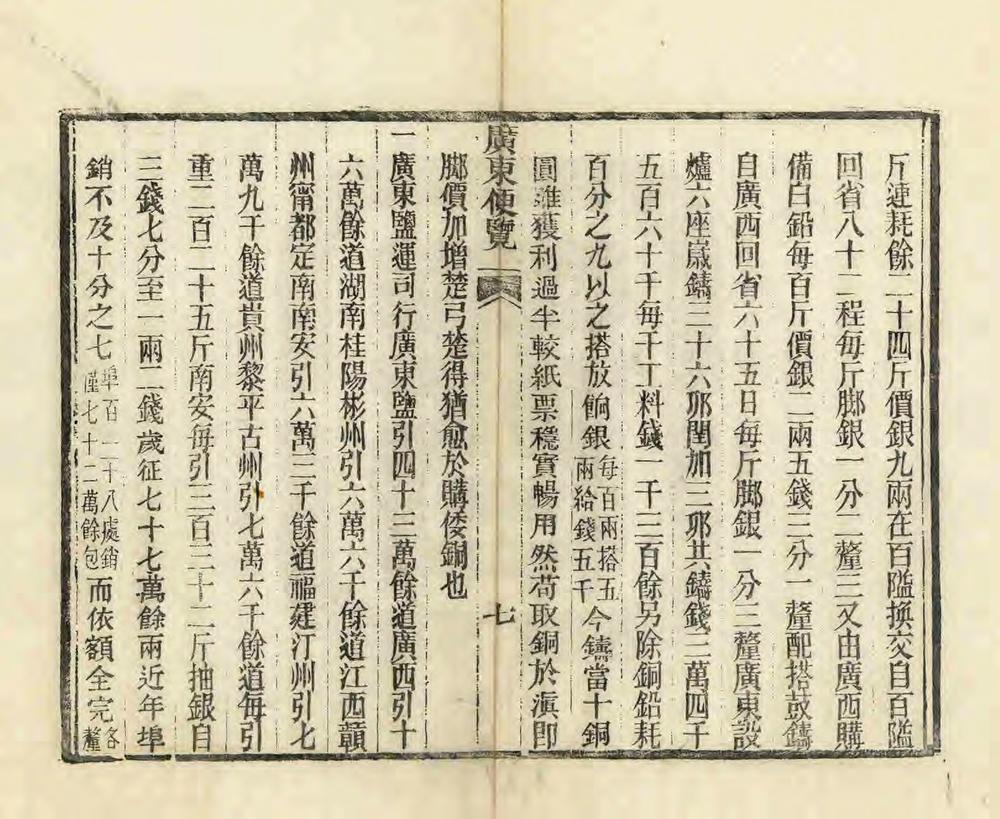 斤連耗餘二十四斤價銀九兩在百隘換交自百隘
回省八十二程每斤脚銀一分二釐三又由廣西購
備白鉛每百斤價銀二兩五錢三分一釐配搭鼓鑄
自廣西回省六十五日每斤脚銀一分三釐廣東設
爐六座嵗鑄三十六夘閏加三夘共鑄錢三萬四千
五百六十千每千工料錢一千三百餘另除銅鉛耗
百分之九以之搭放餉銀每百兩搭五兩給錢五千今鑄當十銅
圓雖獲利過半較紙票穩實暢用然苟取銅於滇即
廣東便覽
七
脚價加增楚弓楚得猶愈於購倭銅也
一廣東鹽運司行廣東鹽引四十三萬餘道廣西引十
六萬餘道湖南桂陽彬州引六萬六千餘道江西贑
州甯都定南南安引六萬三千餘道福建汀州引七
萬九千餘道貴州黎平古州引七萬六千餘道每引
重二百二十五斤南安每引三百三十二斤抽銀自
三錢七分至一兩二錢歲征七十七萬餘兩近年埠
銷不及十分之七埠百二十八處銷僅七十二萬餘包而依額全完各釐